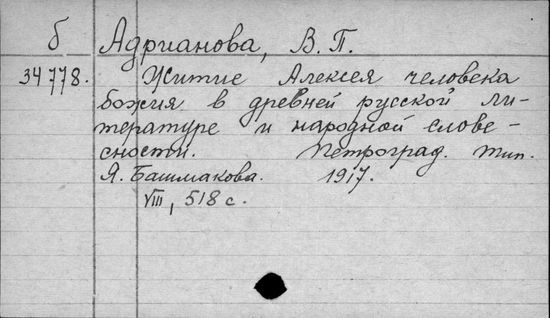 б Адрианова, В. П.
34778. Житие Алексея человека
божия в древней русской ли-
тературе и народной слове-
сности. Петроград. тип.
Я. Башмакова. 1917.
VIII, 518 с.